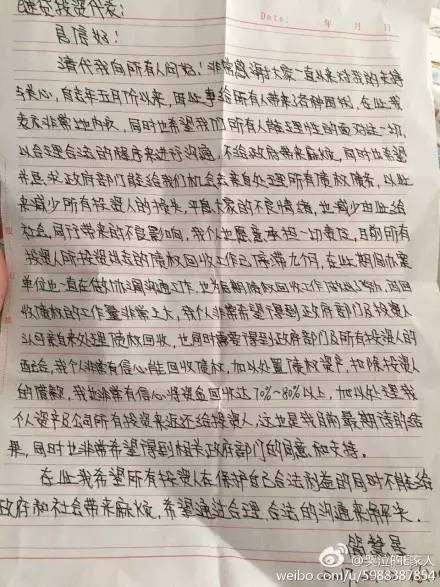 Date: 年 月 日
E速贷投资代表:
见信好!
请代我向所有人问好!非常感谢大家一直以来对我的支持
与关心,自去年五月份以来,因此事给所有人带来各种困扰,在此我
表示非常地内疚,同时也希望我们所有人能理性的面对这一切,
以合理合法的程序来进行沟通,不给政府带来麻烦,同时也希望
并恳求政府部门能给我们机会去亲自处理所有债权债务,以此
来减少所有投资人的损失,平息大家的不良情绪,也减少由此给
社会、同行带来的不良影响,我个也愿意承担一切责任,目前所有
投资人所投资出去的债权回收工作已停滞九个月,在此期间办案
单位也一直在做协调沟通工作,也为后期债权回收工作 而回
收债权的工作量非常之大,我个人非常希望得到政府部门及投资人
认可亲自来处理债权回收,也同时需要得到政府部门及所有投资人的
配合,我个人非常有信心能回收债权,加以处置债权资产,扣除投资人
的借款,我也非常有信心将资金回收达70%~80%以上,加以处理我
个人资产及公司所有投资来返还给投资人,这也是我目前最期待的结
果,同时也非常希望得到相关政府部门的同意和支持。
在此我希望所有投资人在保护自己合法利益的同时不能给
政府和社会带来麻烦,希望通过合理、合法的沟通来解决。
简慧星
weibo.com/u/5988387854